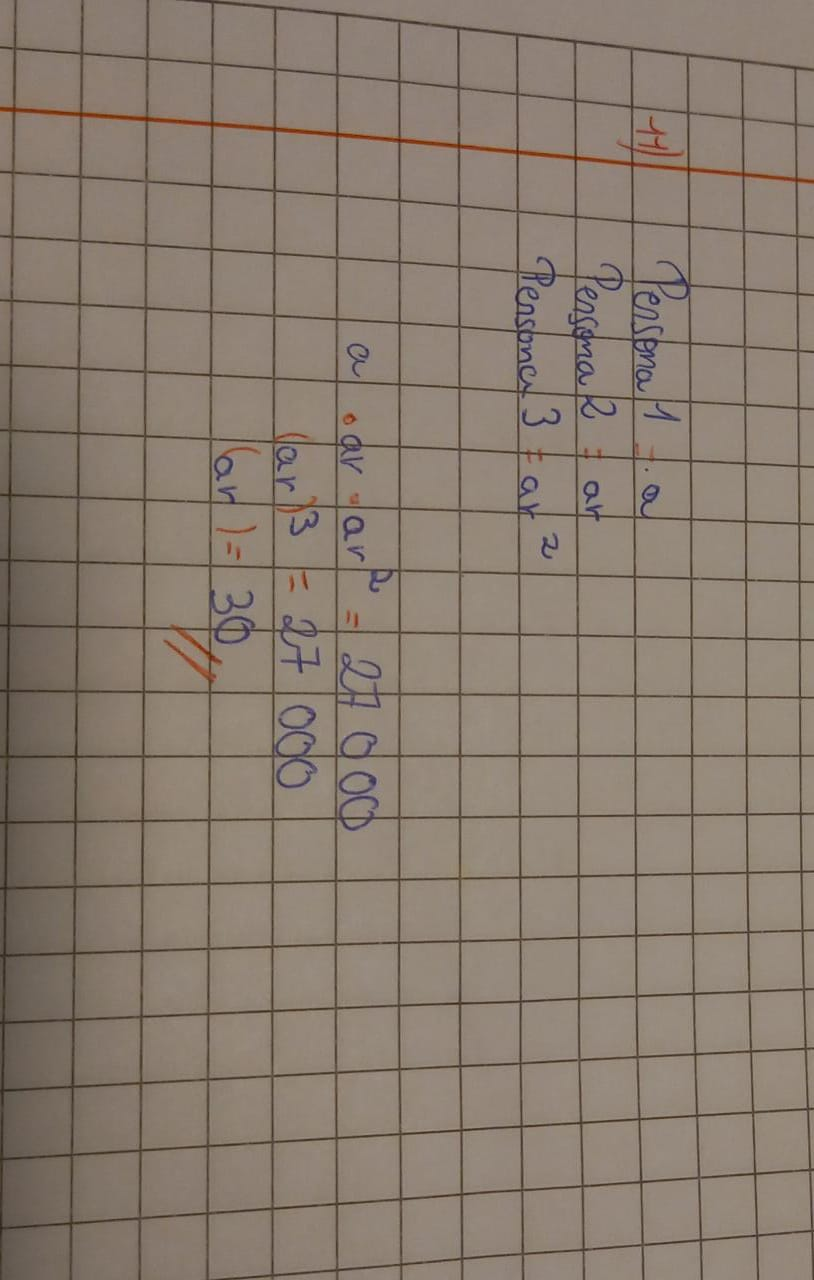 11)
Persona 1 = . a
Persona 2 = ar
Persona 3 = ar²
a · ar · ar² = 27 000
(ar)³ = 27 000
(ar) = 30